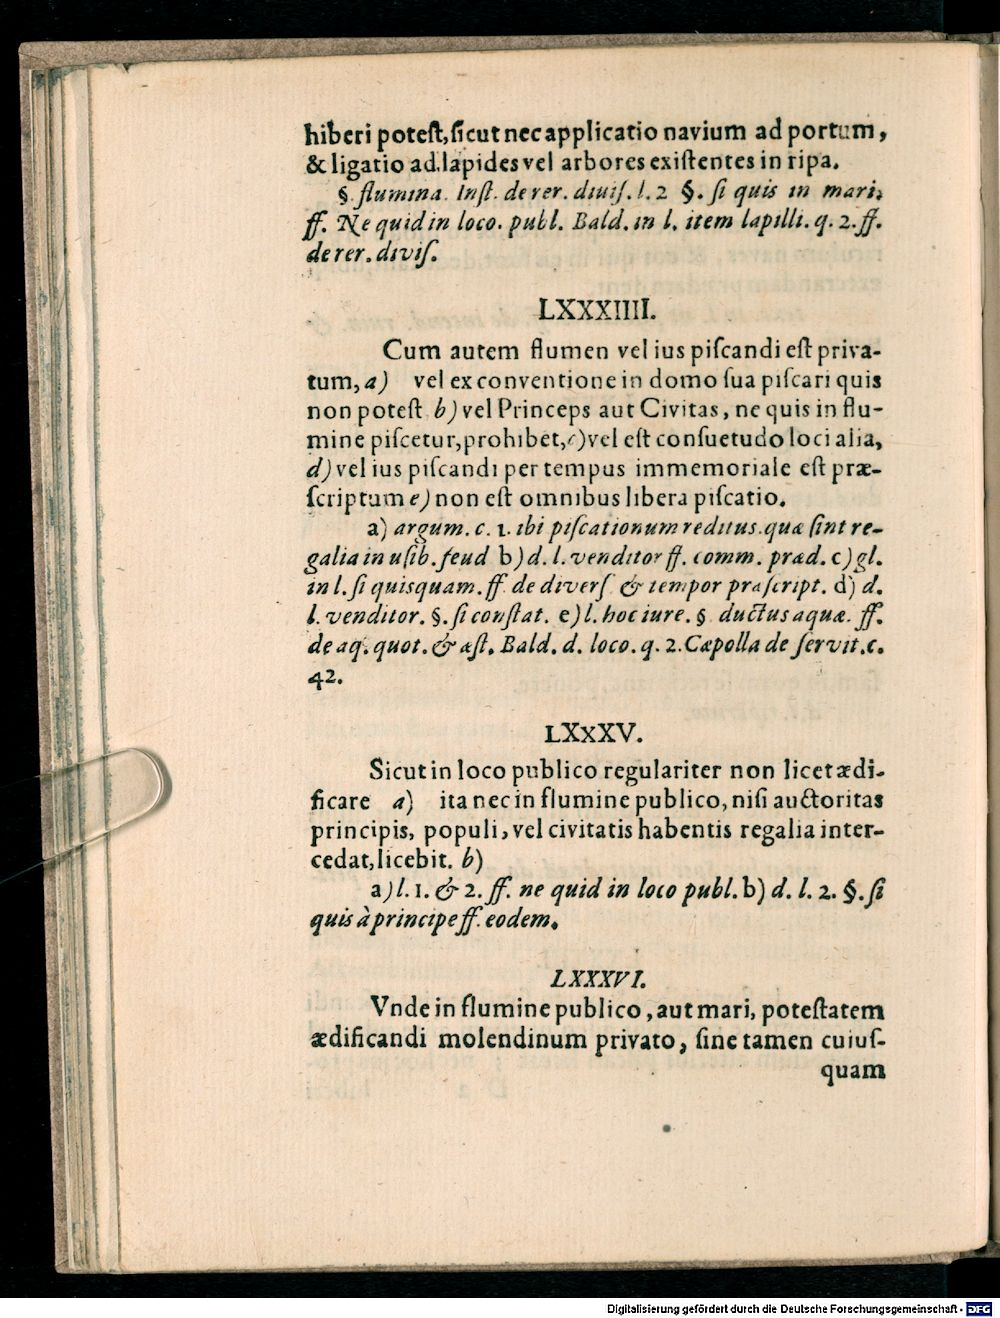 hiberi poteſt, ſicut nec applicatio navium ad portum,
& ligatio ad lapides vel arbores exiſtentes in ripa.
§. flumina. Inſt. de rer. diuiſ. l. 2 §. ſi quis in mari,
ff. Ne quid in loco. publ. Bald. in l. item lapilli. q. 2. ff.
de rer. diviſ.
LXXXIIII.
Cum autem flumen vel ius piſcandi eſt priva-
tum, a) vel ex conventione in domo ſua piſcari quis
non poteſt b) vel Princeps aut Civitas, ne quis in flu-
mine piſcetur, prohibet, c) vel eſt conſuetudo loci alia,
d) vel ius piſcandi per tempus immemoriale eſt præ-
ſcriptum e) non eſt omnibus libera piſcatio.
a) argum. c. 1. ibi piſcationum reditus. quæ ſint re-
galia in uſib. feud b) d. l. venditor ff. comm. præd. c) gl.
in l. ſi quisquam. ff. de diverſ & tempor præſcript. d) d.
l. venditor. §. ſi conſtat. e) l. hoc iure. § ductus aquæ. ff.
de aq. quot. & æſt. Bald. d. loco. q. 2. Cæpolla de ſervit. c.
42.
LXxXV.
Sicut in loco publico regulariter non licet ædi-
ficare a) ita nec in flumine publico, niſi auctoritas
principis, populi, vel civitatis habentis regalia inter-
cedat, licebit. b)
a) l. 1. & 2. ff. ne quid in loco publ. b) d. l. 2. §. ſi
quis à principe ff. eodem.
LXXXVI.
Vnde in flumine publico, aut mari, poteſtatem
ædificandi molendinum privato, ſine tamen cuiuſ-
quam
Digitalisierung gefördert durch die Deutsche Forschungsgemeinschaft - DFG